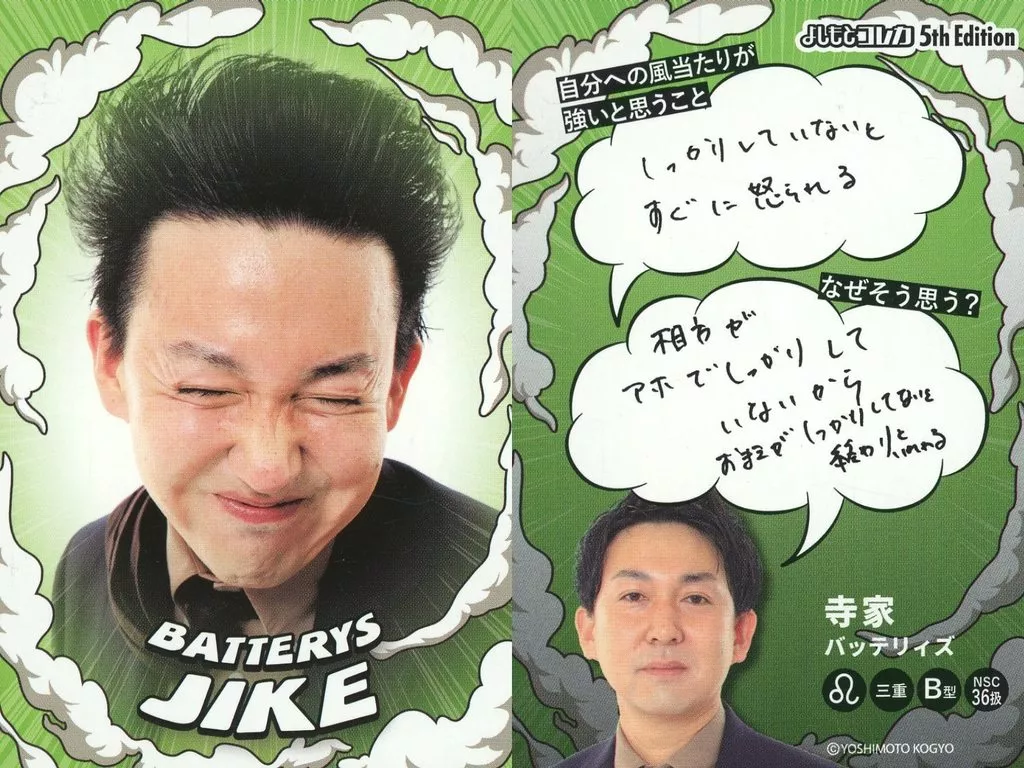 BATTERYS
JIKE
よしもとコレカ 5th Edition
自分への風当たりが
強いと思うこと
しっかりしていないと
すぐに怒られる
なぜそう思う？
相方が
アホでしっかりして
いないから
おまえがしっかりしてないと
終わりといわれる
寺家
バッテリィズ
♌ 三重 B型 NSC 36期
©YOSHIMOTO KOGYO